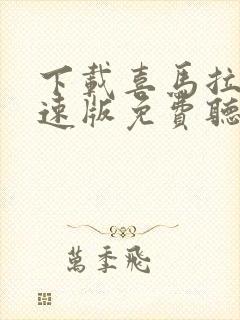 下載喜馬拉
速版免費聽
萬季飛